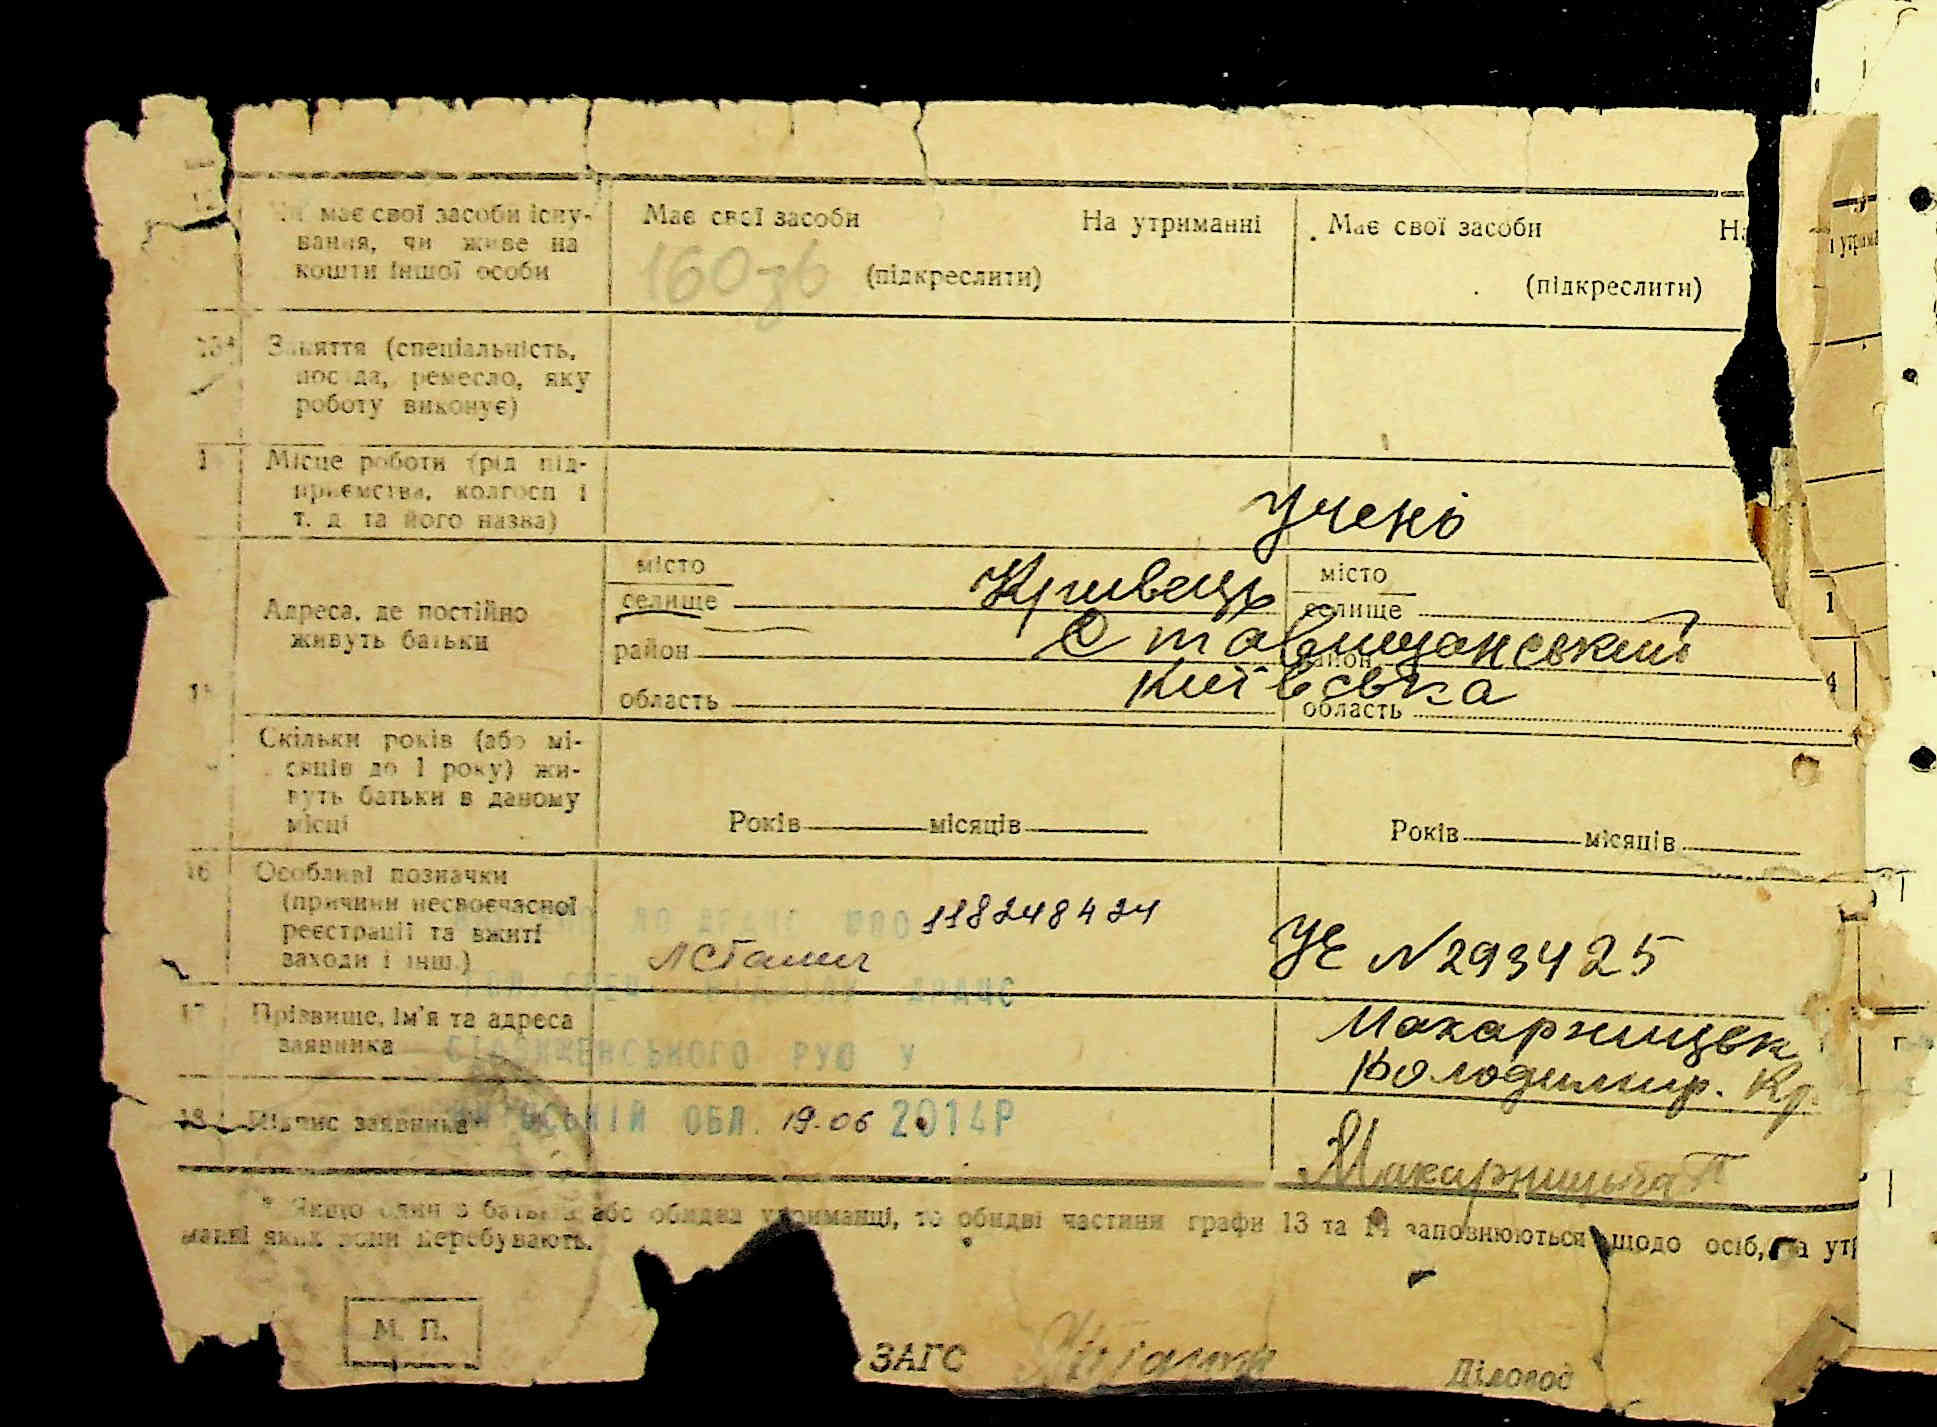 має свої засоби існу-
вання, чи живе на
кошти іншої особи
Має свої засоби На утриманні
160зв (підкреслити)
Має свої засоби На
(підкреслити)
і утрима
13* Заняття (спеціальність,
посада, ремесло, яку
роботу виконує)
1 Місце роботи (рід під-
приємства, колгосп і
т. д та його назва)
Учень
Адреса, де постійно
живуть батьки
місто
селище Кривець
район Ставищанський
область Київська
місто
селище
район
область
1
4
15 Скільки років (або мі-
сяців до 1 року) жи-
вуть батьки в даному
місці
Років місяців
Років місяців
16 Особливі позначки
(причини несвоєчасної
реєстрації та вжиті
заходи і інш.)
118248424
УЕ №293425
ДРАЦС
17 Прізвище, ім'я та адреса
заявника
СТАВИЩЕНСЬКОГО РУЮ У
Макарницьк
Володимир. Кр.
18 Підпис заявника
ОБЛ. 19.06 2014Р
* Якщо один з батьків або обидва утриманці, то обидві частини графи 13 та 14 заповнюються щодо осіб, на ут
манні яких вони перебувають.
М. П.
ЗАГС
Діловод